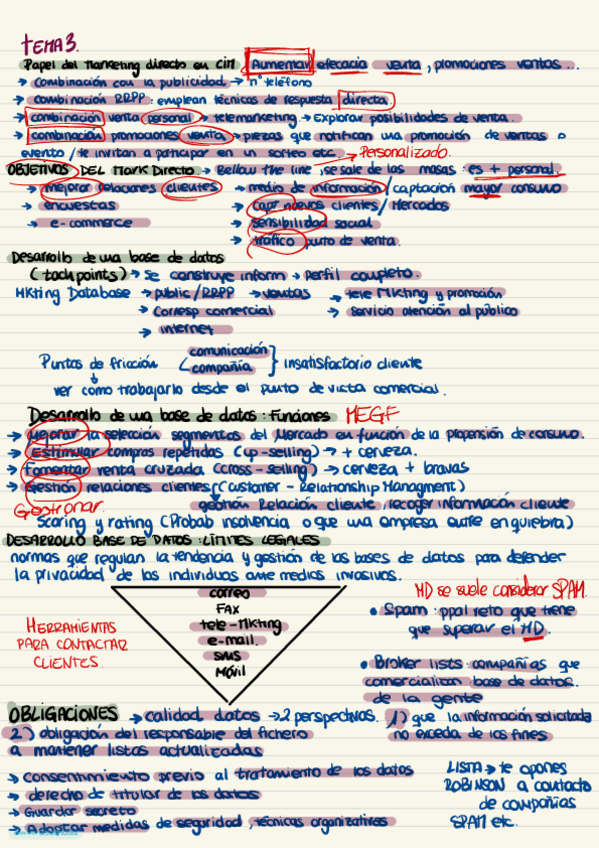 TEMA 3.
Papel del Marketing directo en CIM Aumentar efecacia venta, promociones ventas...
→ Combinación con la publicidad → nº teléfono
→ combinación RRPP: emplean técnicas de respuesta directa
→ combinación venta personal → telemarketing → Explorar posibilidades de venta.
→ combinación promociones venta → piezas que notifican una promoción de ventas o
evento / te invitan a participar en un sorteo etc. → Personalizado.
OBJETIVOS DEL Mark Directo → Bellow the line, se sale de las masas: es + personal.
→ mejorar relaciones clientes → medio de información / captación mayor consumo
→ encuestas → capt nuevos clientes / Mercados
→ e-commerce → sensibilidad social
→ tráfico punto de venta.
Desarrollo de una base de datos
(tach points) → se construye inform → perfil completo.
MKting Database → public/RRPP → ventas → tele MKting y promoción
→ Corresp comercial → servicio atención al público
→ internet
Puntos de fricción comunicación compañía } insatisfactorio cliente
ver como trabajarlo desde el punto de vista comercial.
Desarrollo de una base de datos: Funciones MEGF
→ Mejorar la selección segmentos del Mercado en función de la propensión de consumo.
→ Estimular compras repetidas (up-selling) → + cerveza.
→ Fomentar venta cruzada (cross-selling) → cerveza + bravas
→ Gestión relaciones clientes (Customer-Relationship Managment)
Gestionar gestión Relación cliente, recoger información cliente
Scoring y rating (Probab insolvencia o que una empresa entre en quiebra)
DESARROLLO BASE DE DATOS: LÍMITES LEGALES
normas que regulan la tendencia y gestión de las bases de datos para defender
la privacidad de los individuos ante medios invasivos.
HERRAMIENTAS
PARA CONTACTAR
CLIENTES.
correo
FAX
tele-MKting
e-mail.
SMS
Móvil
MD se suele considerar SPAM.
• Spam: ppal reto que tiene
que superar el MD.
• Broker lists: compañías que
comercializan base de datos.
de la gente
OBLIGACIONES → calidad datos → 2 perspectivas. 1) que la información solicitada
no exceda de los fines
2) obligación del responsable del fichero
a mantener listas actualizadas
→ consentimiento previo al tratamiento de los datos
→ derecho de titular de los datos
→ Guardar secreto
→ Adoptar medidas de seguridad, técnicas organizativas
LISTA → te opones
ROBINSON a contacto
de compañías
SPAM etc.